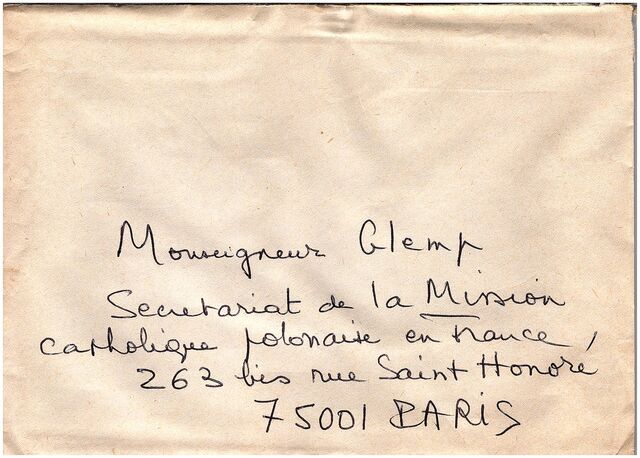 Monseigneur Glemp
Secretariat de la Mission
catholique polonaise en France,
263 bis rue Saint Honoré
75001 PARIS